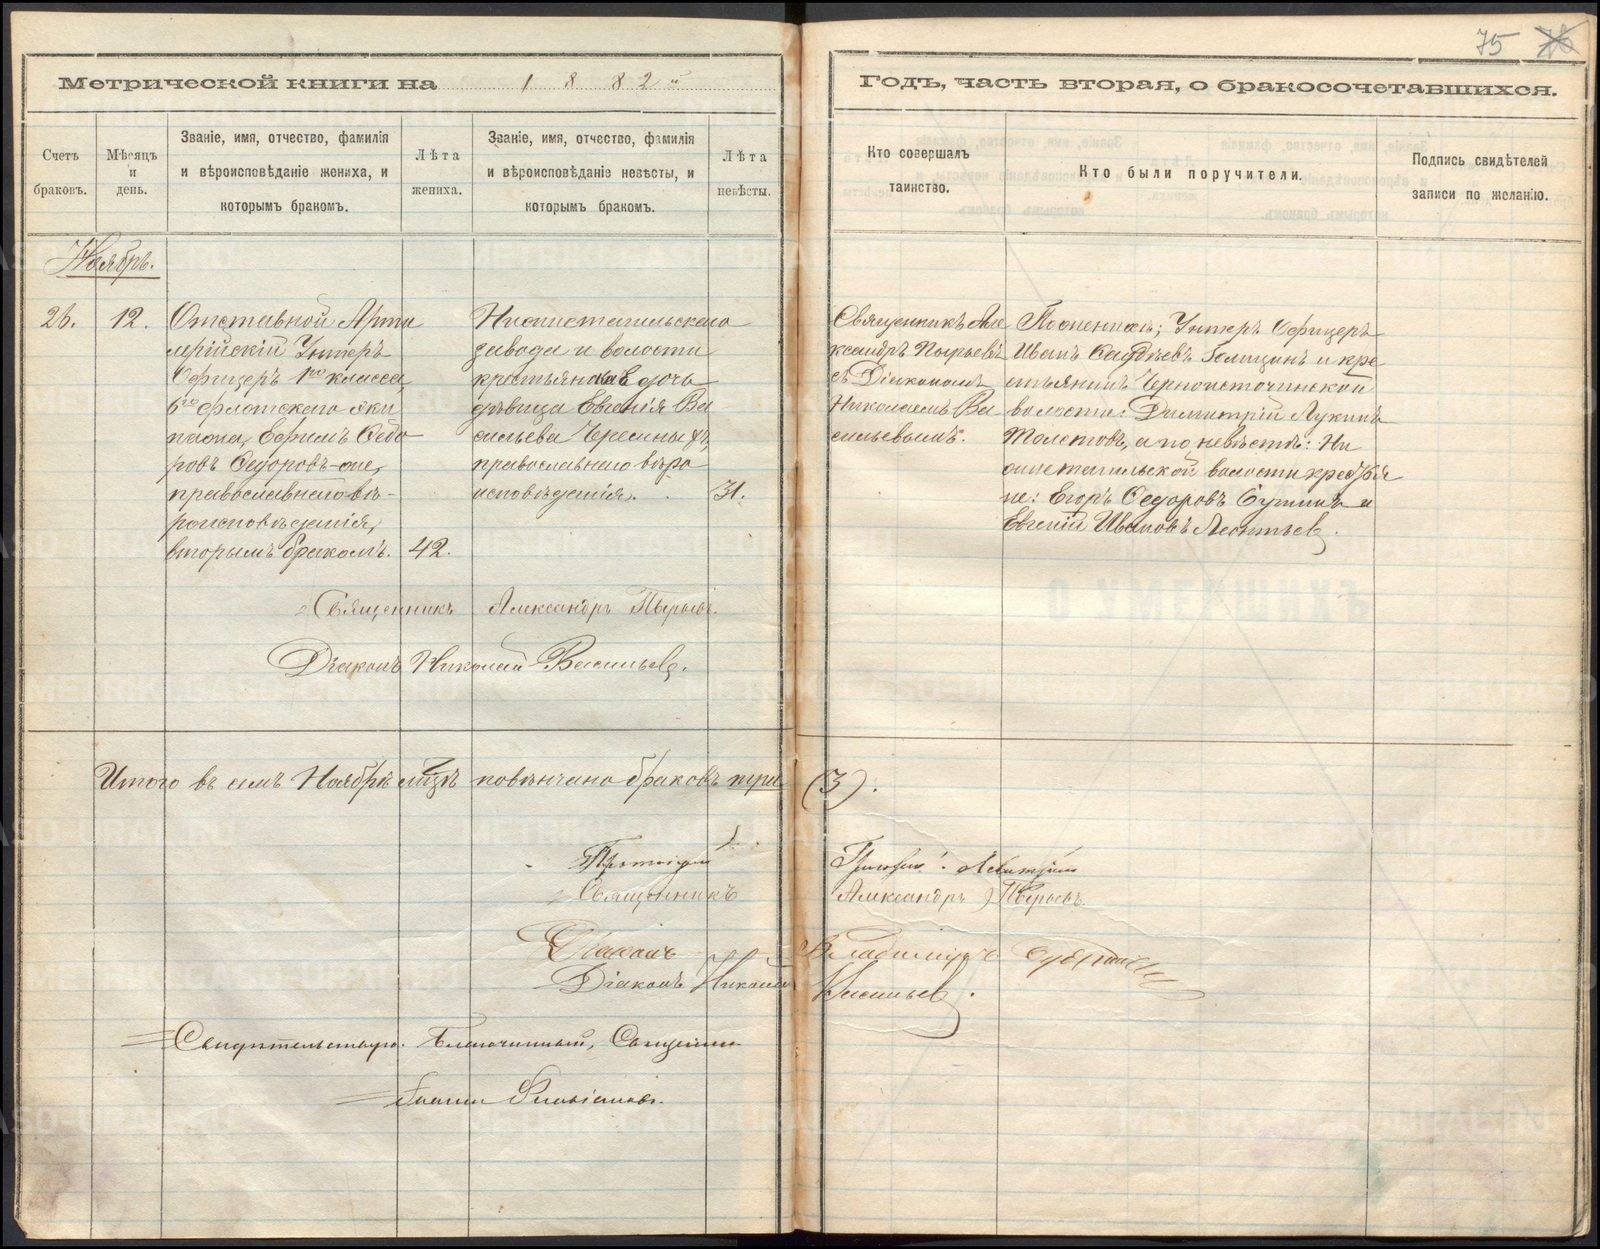 75 76
Метрической книги на 1882й
Годъ, часть вторая, о бракосочетавшихся.
Счетъ браковъ.
Мѣсяцъ и день.
Званіе, имя, отчество, фамилія
и вѣроисповѣданіе жениха, и
которымъ бракомъ.
Лѣта жениха.
Званіе, имя, отчество, фамилія
и вѣроисповѣданіе невѣсты, и
которымъ бракомъ.
Лѣта невѣсты.
Кто совершалъ
таинство.
Кто были поручители.
Подпись свидѣтелей
записи по желанію.
Ноябрь.
26.
12.
Отставной Арти
лерійскій Унтеръ
Офицеръ 1го класса,
6го флотскаго эки
пажа, Ефимъ Ѳедо
ровъ Ѳедоровъ-же,
православнаго вѣ-
роисповѣданія,
вторымъ бракомъ.
42.
Нижнетагильскаго
завода и волости
крестьянская дочь
дѣвица Евгенія Ва
сильева
православнаго вѣро
исповѣданія.
31.
Священникъ Але
ксандръ Пырьевъ
съ Діакономъ
Николаемъ Ва
сильевымъ.
По женихѣ; Унтеръ Офицеръ
Иванъ Голицинъ и кре
стьянинъ Черноисточинской
волости: Димитрій Лукинъ
Толстовъ, а по невѣстѣ: Ни
жнетагильской волости крестья
не: Егоръ Ѳедоровъ и
Евгеній Ивановъ Леонтьевъ.
Священникъ Александръ Пырьевъ.
Діаконъ Николай Васильевъ.
Итого въ семъ Ноябрѣ мѣсяцѣ повѣнчано браковъ три (3).
Протоіерей Григорій Левитскій
Священникъ Александръ Пырьевъ.
Діаконъ Владиміръ
Діаконъ Николай Васильевъ.
Свидѣтельствовалъ Благочинный, Священникъ
Іоаннъ Флавіановъ.